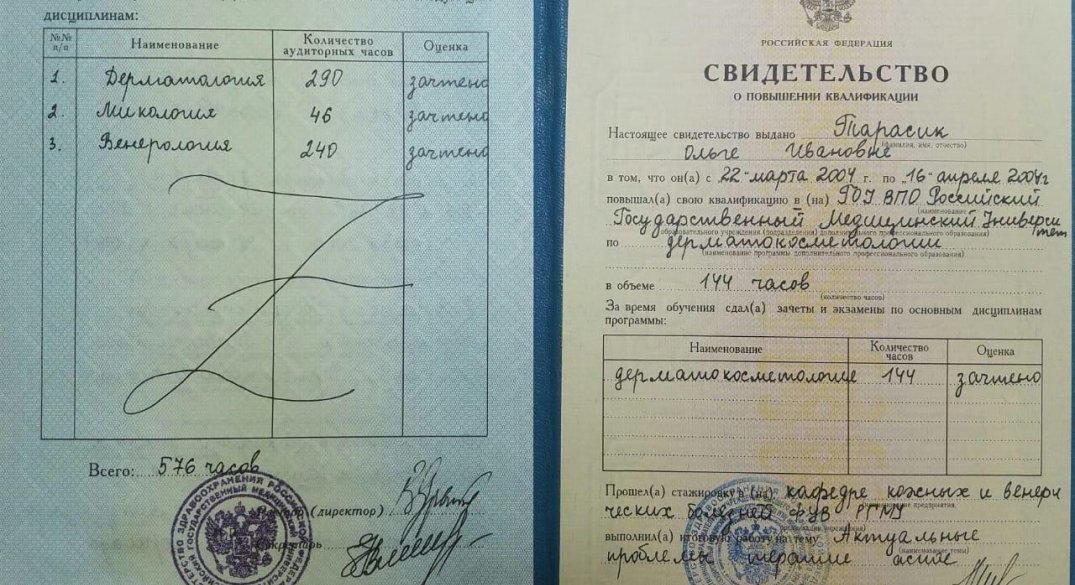 дисциплинам:
№№ п/п
Наименование
Количество аудиторных часов
Оценка
1. Дерматология 290 зачтено
2. Микология 46 зачтено
3. Венерология 240 зачтено
Всего: 576 часов
(директор)
Секретарь
РОССИЙСКАЯ ФЕДЕРАЦИЯ
СВИДЕТЕЛЬСТВО
О ПОВЫШЕНИИ КВАЛИФИКАЦИИ
Настоящее свидетельство выдано Тарасик
(фамилия, имя, отчество)
Ольге Ивановне
в том, что он(а) с 22 марта 2004 г. по 16 апреля 2004 г
повышал(а) свою квалификацию в (на) ГОУ ВПО Российский
(наименование
Государственный Медицинский Университет
образовательного учреждения (подразделения) дополнительного профессионального образования)
по дерматокосметологии
(наименование программы дополнительного профессионального образования)
в объеме 144 часов
(количество часов)
За время обучения сдал(а) зачеты и экзамены по основным дисциплинам
программы:
Наименование
Количество часов
Оценка
дерматокосметология 144 зачтено
Прошел(а) стажировку в (на) кафедре кожных и венери
предприятия,
ческих болезней ФУВ РГМУ
выполнил(а) итоговую работу на тему Актуальные
(наименование темы)
проблемы терапии акне